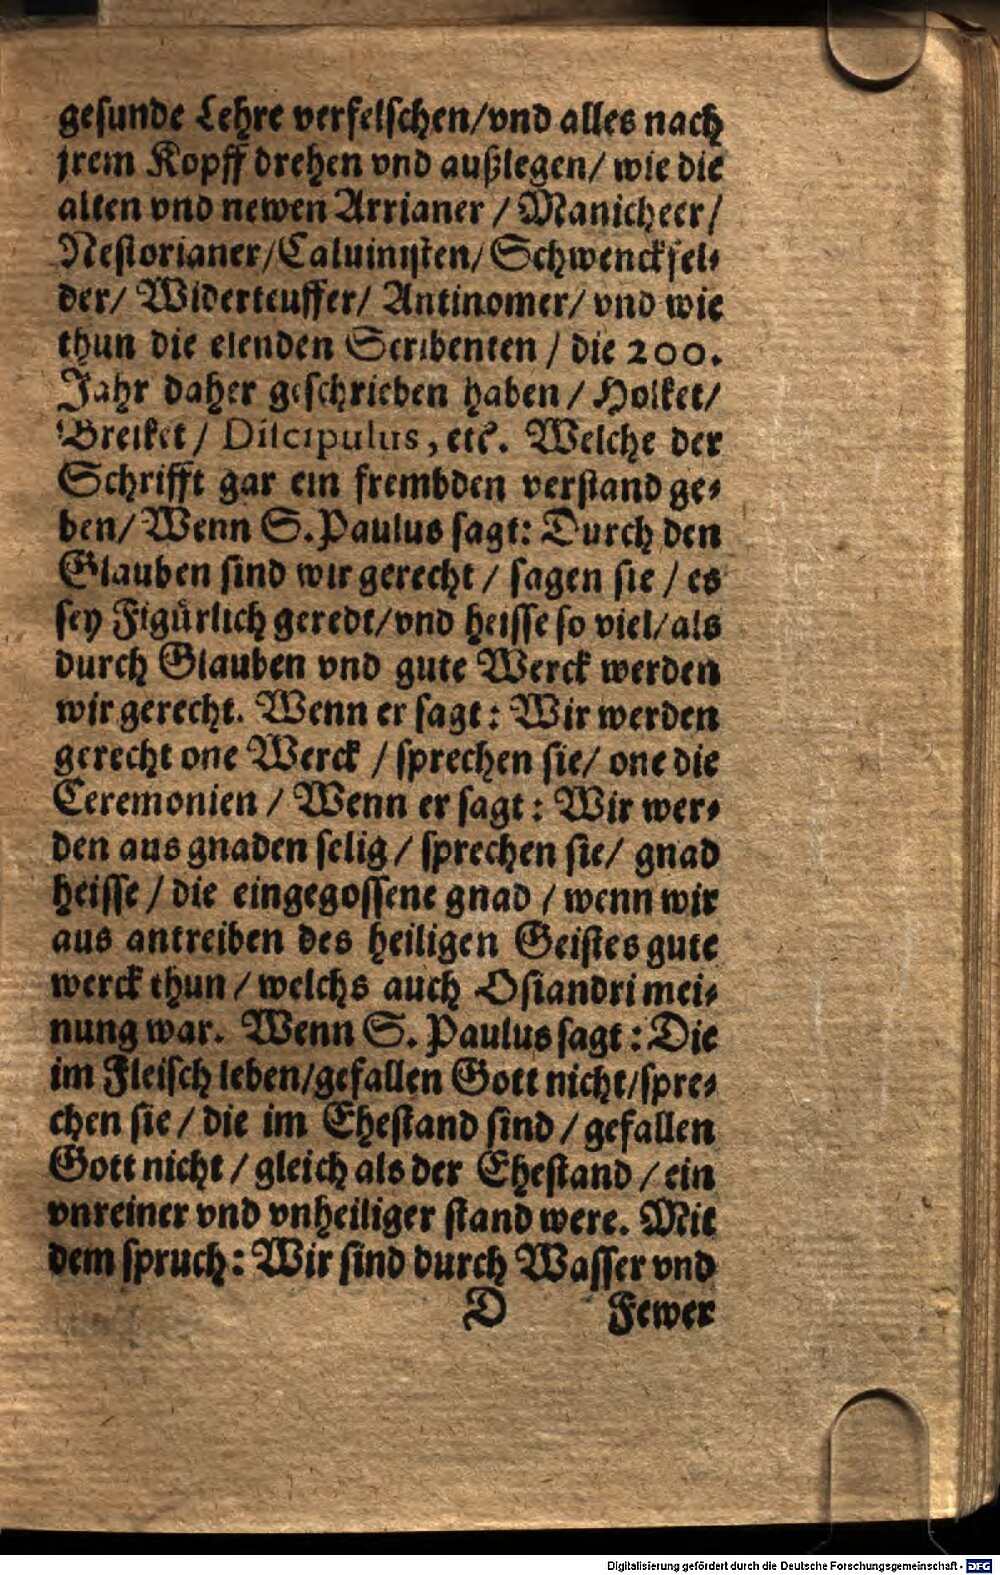 gesunde Lehre verfelschen/vnd alles nach
jrem Kopff drehen vnd außlegen/ wie die
alten vnd newen Arrianer / Manicheer/
Nestorianer/Caluinisten/ Schwenckfel⸗
der/ Widerteuffer/ Antinomer/ vnd wie
thun die elenden Scribenten / die 200.
Jahr daher geschrieben haben / Holket/
Breiket / Discipulus, etc. Welche der
Schrifft gar ein frembden verstand ge⸗
ben/ Wenn S. Paulus sagt: Durch den
Glauben sind wir gerecht / sagen sie / es
sey Figürlich geredt/vnd heisse so viel/als
durch Glauben vnd gute Werck werden
wir gerecht. Wenn er sagt: Wir werden
gerecht one Werck / sprechen sie/ one die
Ceremonien / Wenn er sagt: Wir wer⸗
den aus gnaden selig / sprechen sie/ gnad
heisse / die eingegossene gnad / wenn wir
aus antreiben des heiligen Geistes gute
werck thun / welchs auch Osiandri mei⸗
nung war. Wenn S. Paulus sagt: Die
im Fleisch leben/gefallen Gott nicht/spre⸗
chen sie / die im Ehestand sind / gefallen
Gott nicht / gleich als der Ehestand / ein
vnreiner vnd vnheiliger stand were. Mit
dem spruch: Wir sind durch Wasser vnd
D Fewer
Digitalisierung gefördert durch die Deutsche Forschungsgemeinschaft - DFG